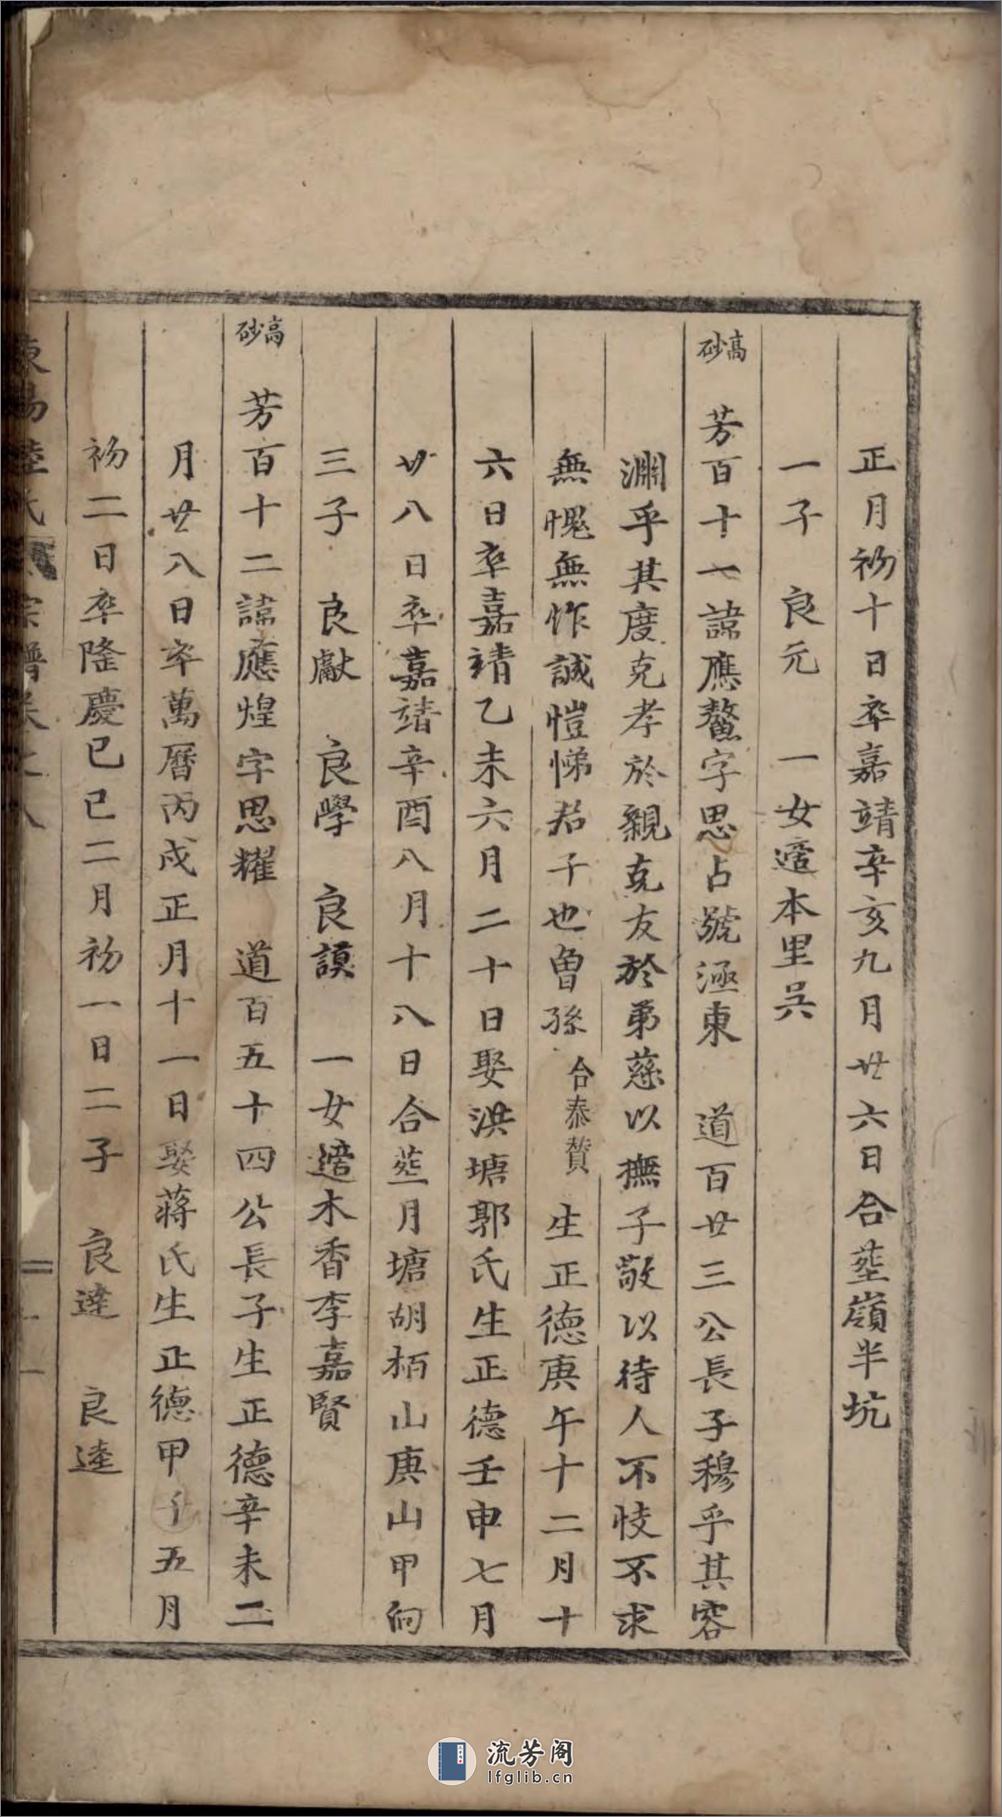 正月初十日卒嘉靖辛亥九月廿六日合塟嶺半坑
一子　良元　一女適本里吳
高砂　芳百十一諱應鰲字思占號涵東　道百廿三公長子穆乎其容
淵乎其度克孝於親克友於弟慈以撫子敬以待人不忮不求
無愧無怍誠愷悌君子也曾孫合泰贊生正德庚午十二月十
六日卒嘉靖乙未六月二十日娶洪塘郭氏生正德壬申七月
廿八日卒嘉靖辛酉八月十八日合塟月塘胡栢山庚山甲向
三子　良獻　良學　良謨　一女適木香李嘉賢
高砂　芳百十二諱應煌字思耀　道百五十四公長子生正德辛未二
月廿八日卒萬曆丙戌正月十一日娶蔣氏生正德甲五月
初二日卒隆慶己巳二月初一日二子　良達　良逵
陸氏宗譜卷之八
流芳阁
lfglib.cn